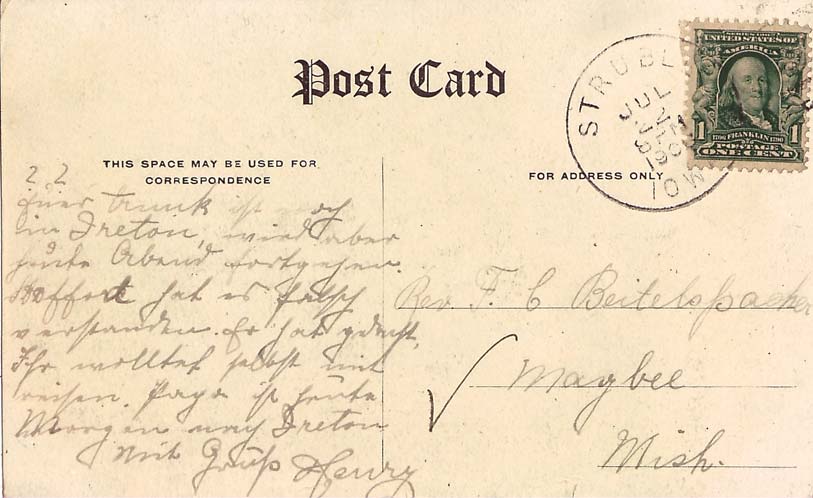 Post Card
THIS SPACE MAY BE USED FOR
CORRESPONDENCE
22
Euer trunk ist noch
in Ireton, wird aber
heute Abend fortgehen.
hat es falsch
verstanden. Er hat gdacht,
Ihr wolltet selbst mit
reisen. Papa ist heute
Morgen nach Ireton
Mit Gruß Henry
FOR ADDRESS ONLY
Rev. F. C Beitelspacher
Maybee
Mish.
STRUBL
JUL
190
IOW
SERIES 1902
UNITED STATES OF
AMERICA
1 1706 FRANKLIN 1790 1
POSTAGE
ONE CENT